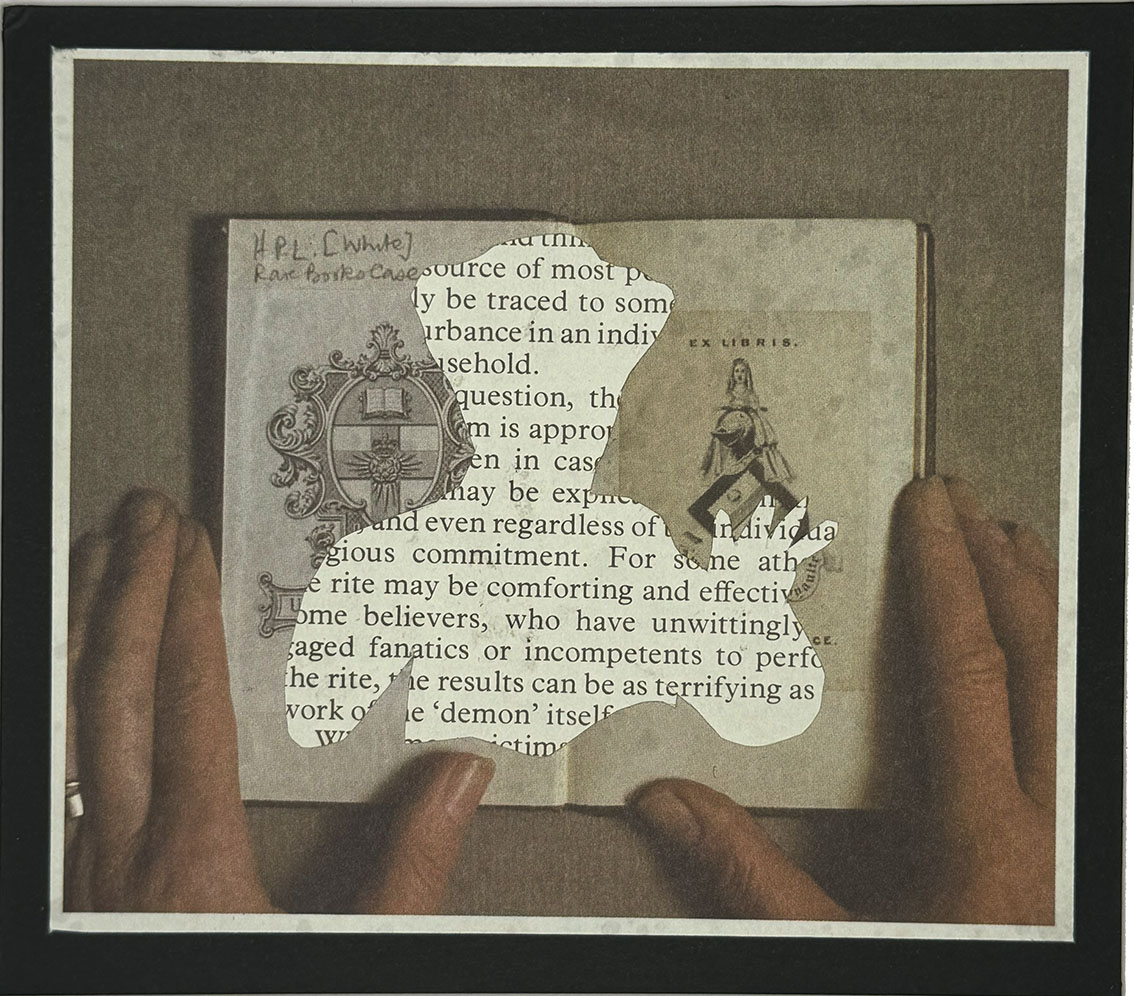 H.P.L. [White]
Rare Books Case
source of most
ly be traced to some
urbance in an indiv
usehold.
question, the
m is appro
en in cas
may be expli
and even regardless of individua
gious commitment. For some ath
e rite may be comforting and effectiv
ome believers, who have unwittingly
gaged fanatics or incompetents to perfo
the rite, the results can be as terrifying as
work of the ‘demon’ itself
ictims
EX LIBRIS.
CE.